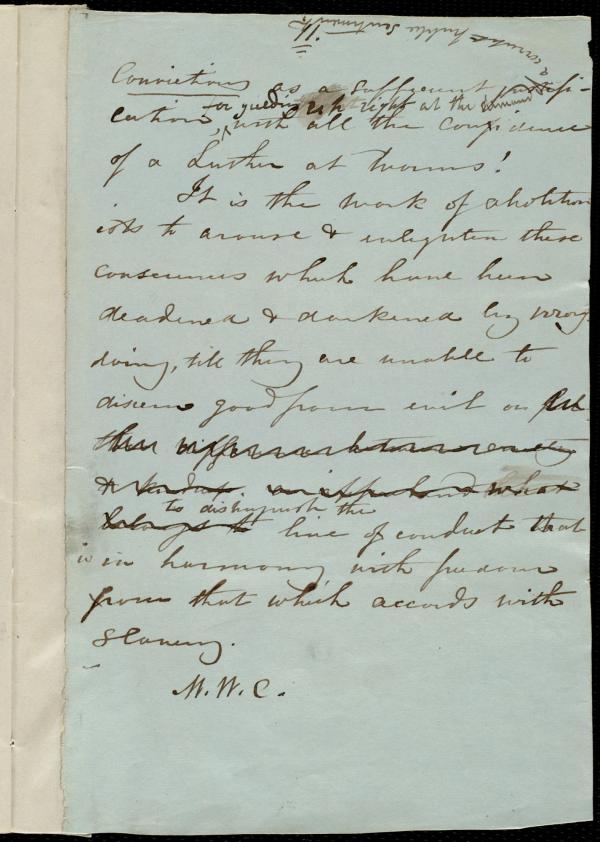 a corrupt public sentiment
Convictions as a sufficient justifi-
for yielding up right at the demand of
cation, with all the confidence
of a Luther at Worms!
It is the work of abolition
ists to arouse & enlighten these
consciences which have been
deadened & darkened by wrong
doing, till they are unable to
discern good from evil or
& what
to distinguish the
belongs to line of conduct that
is in harmony with freedom
from that which accords with
Slavery.
M. W. C.